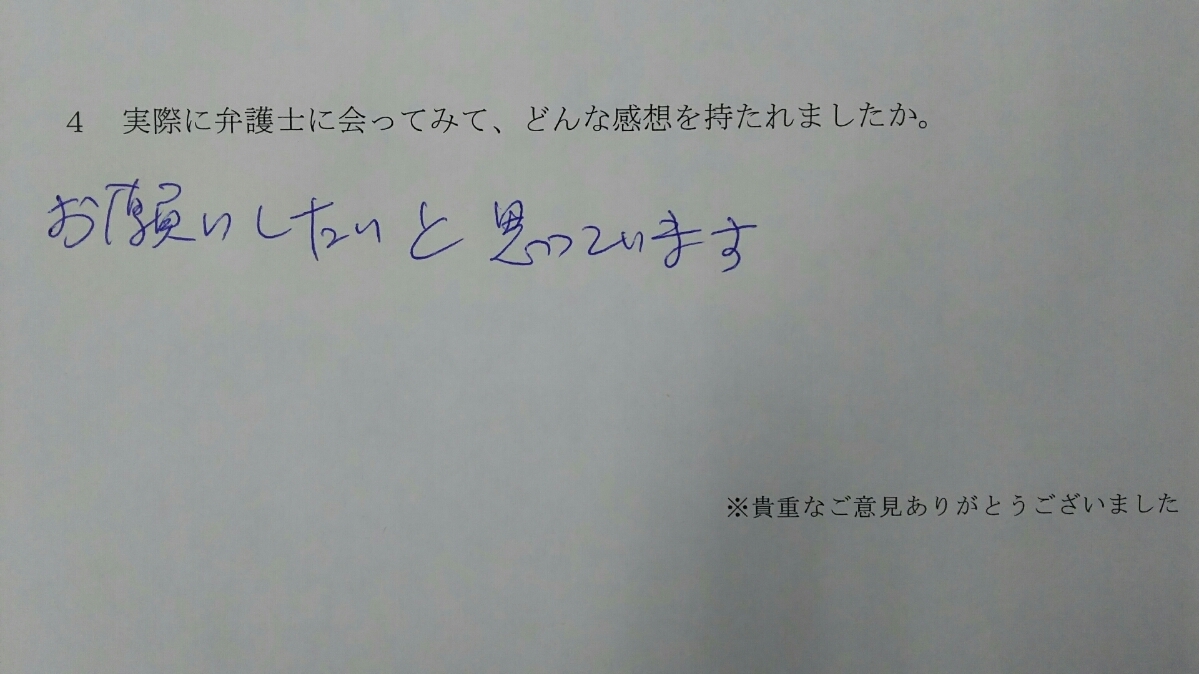 4　実際に弁護士に会ってみて、どんな感想を持たれましたか。
お願いしたいと思っています
※貴重なご意見ありがとうございました